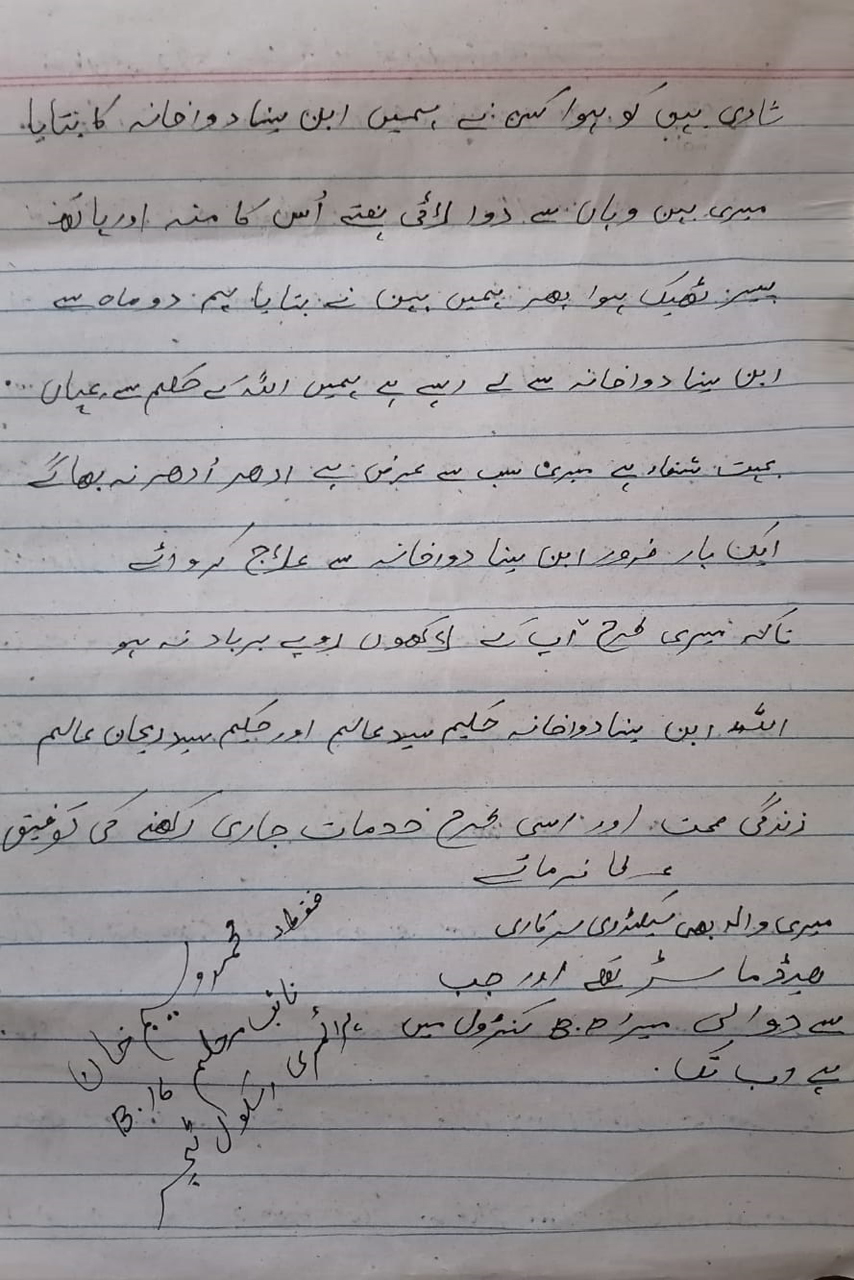 شادی بہن کو ہوا کسی نے ہمیں ابن سینا دواخانہ کا بتایا۔
میری بہن وہاں سے دوا لائی ہفتے اُس کا منہ اور ہاتھ
پیر ٹھیک ہوا پھر ہمیں بہن نے بتایا ہم دو ماہ سے
ابن سینا دواخانہ سے لے رہے ہے ہمیں اللہ کے حکم سے یہاں
بہت شفاء ہے میری سب سے عرض ہے ادھر اُدھر نہ بھاگے
ایک بار ضرور ابن سینا دواخانہ سے علاج کروائے
تاکہ میری طرح آپ کے لاکھوں روپے برباد نہ ہو
اللہ ابن سینا دواخانہ حکیم سید عالم اور حکیم سید ریحان عالم
زندگی صحت اور اسی طرح خدمات جاری رکھنے کی توفیق
عطا فرمائے
میری والد بھی سیکنڈری سرکاری
ہیڈ ماسٹر تھے اور جب
سے دوا لی میرا B.P کنٹرول میں
ہے اب تک۔
فقط محمد وسیم خان
نائب معلم B.16
پرائمری اسکول ٹیچر